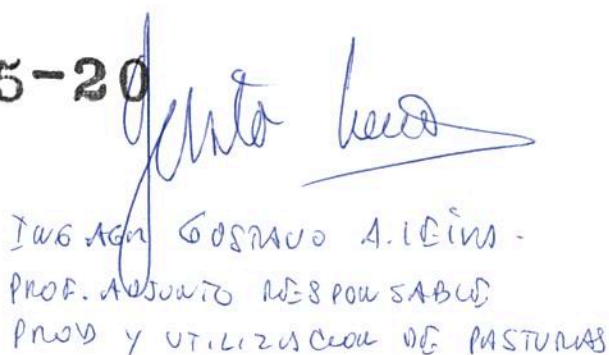 5-20
ING AGR GUSTAVO A. LEIVA.
PROF. ADJUNTO RESPONSABLE
PROD Y UTILIZACION DE PASTURAS